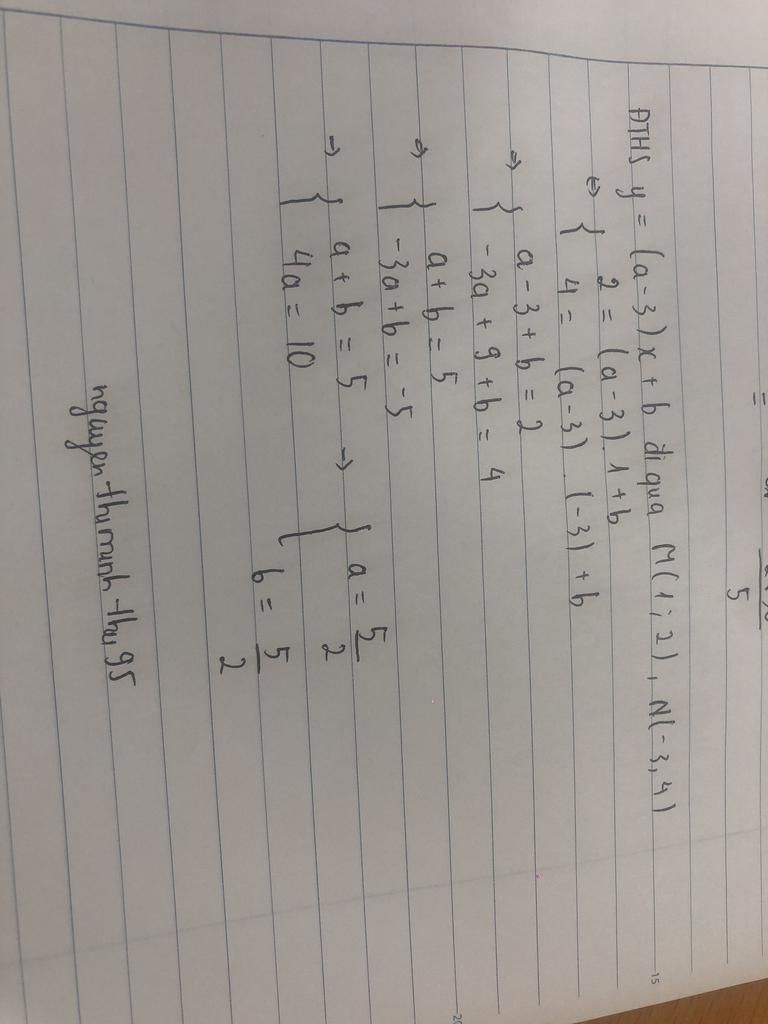 = 5
ĐTHS y = (a-3)x + b đi qua M(1;2), N(-3,4)
⇔ { 2 = (a-3).1+b
4 = (a-3).(-3)+b
⇒ { a-3+b=2
-3a+9+b=4
⇒ { a+b=5
-3a+b=-5
→ { a+b=5 → { a=5/2
4a=10 b=5/2
nguyen-thiminh-thu95
15
20